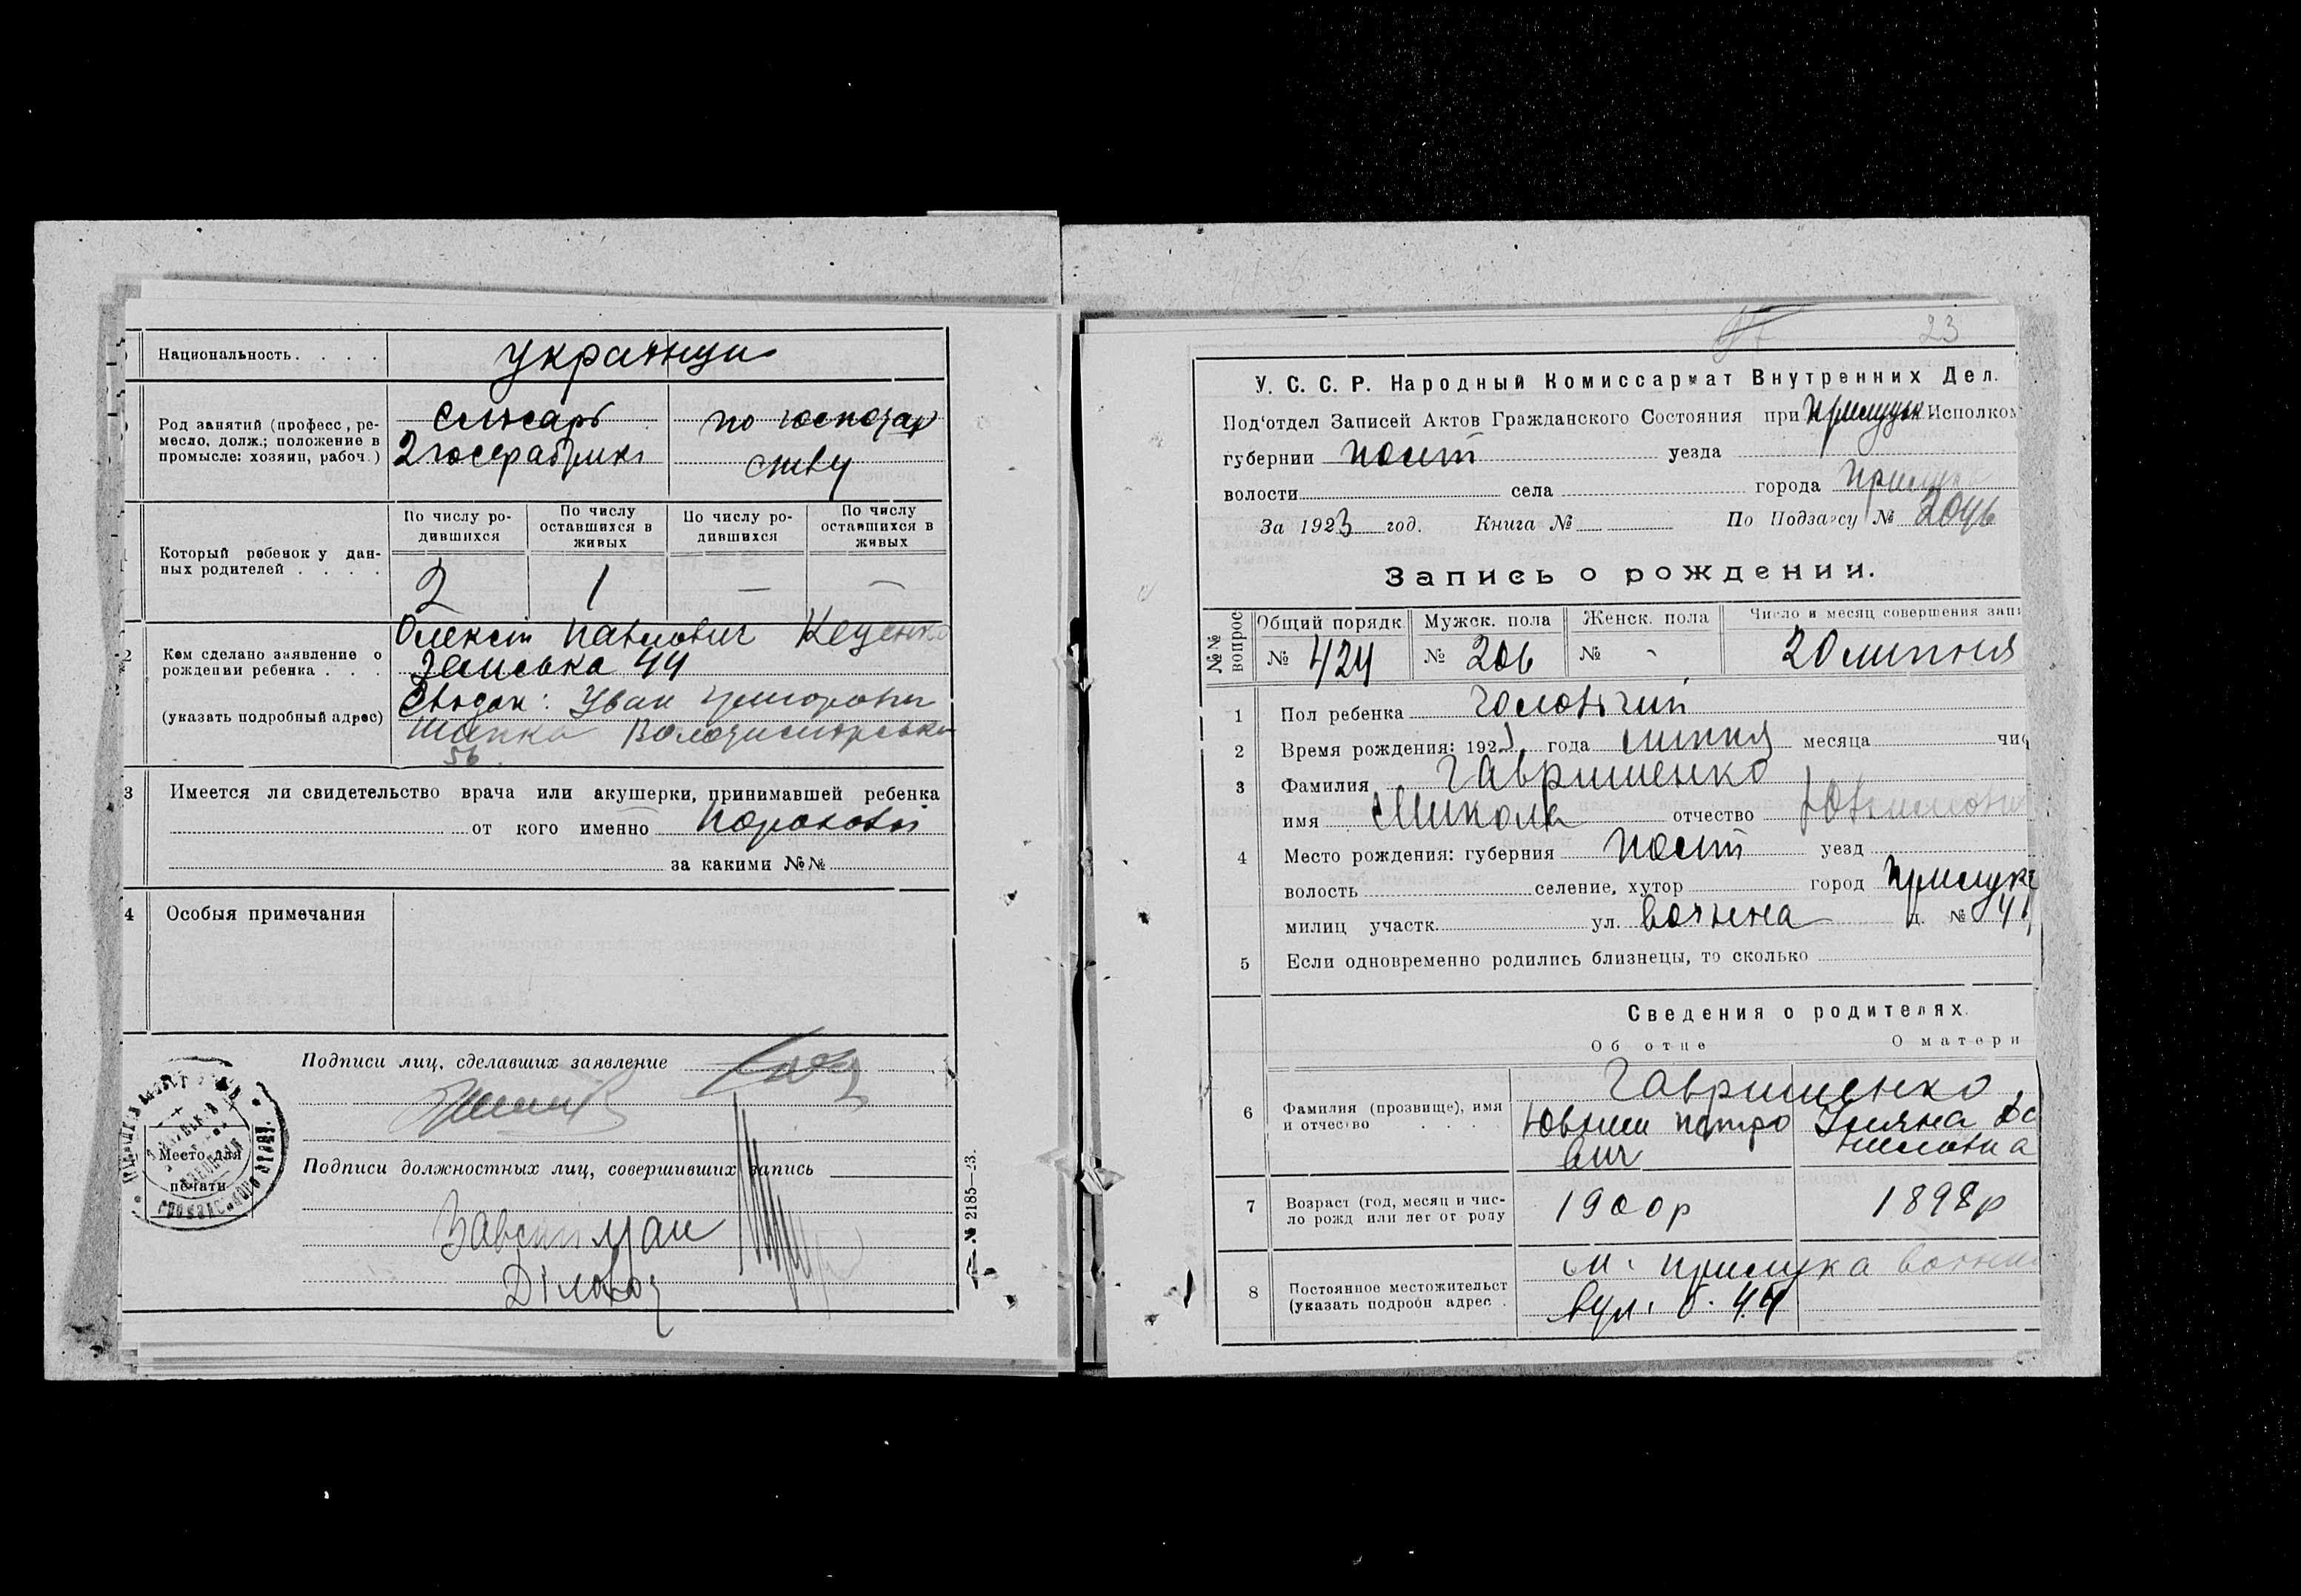 Национальность. . . .
українци
Род занятий (професс, ре-
месло, долж.; положение в
промысле: хозяин, рабоч.)
слюсарь
по господар
ству
По числу ро-
дившихся
По числу
оставшихся в
живых
По числу ро-
дившихся
По числу
оставшихся в
живых
Который ребенок у дан-
ных родителей . . . .
2 1 — —
2 Кем сделано заявление о
рождении ребенка . . .
(указать подробный адрес)
Олексій Павлович
Земська 44
Свідок: Іван Григорович
Шапка Володимирська
56.
3 Имеется ли свидетельство врача или акушерки, принимавшей ребенка
от кого именно
за какими №№
4 Особыя примечания
Подписи лиц, сделавших заявление
Место для
печати
Подписи должностных лиц, совершивших запись
Діловод
№ 2185—23.
23
У. С. С. Р. Народный Комиссариат Внутренних Дел.
Под‘отдел Записей Актов Гражданского Состояния при Прилуцьк Исполком
губернии Полт уезда
волости села города Прилук
За 1923 год. Книга № По Подзагсу № 2046
Запись о рождении.
№№ вопрос
Общий порядк Мужск. пола Женск. пола Число и месяц совершения запи
№ 424 № 206 № - 20 липня
1 Пол ребенка чоловічий
2 Время рождения: 1923 года липня месяца чис
3 Фамилия Гавришенко
имя Микола отчество Ювхимович
4 Место рождения: губерния Полт уезд
волость селение, хутор город Прилуке
милиц участк. ул. д. №
5 Если одновременно родились близнецы, то сколько
Сведения о родителях.
Об отце О матери
Гавришенко
6 Фамилия (прозвище), имя
и отчество . . . .
Ювхим Петро
вич
Уляна Да
ниловна
7 Возраст (год, месяц и чис-
ло рожд или лет от роду
1900р 1898р
8 Постоянное местожительст
(указать подробн адрес .
м. Прилука
вул. б. 44